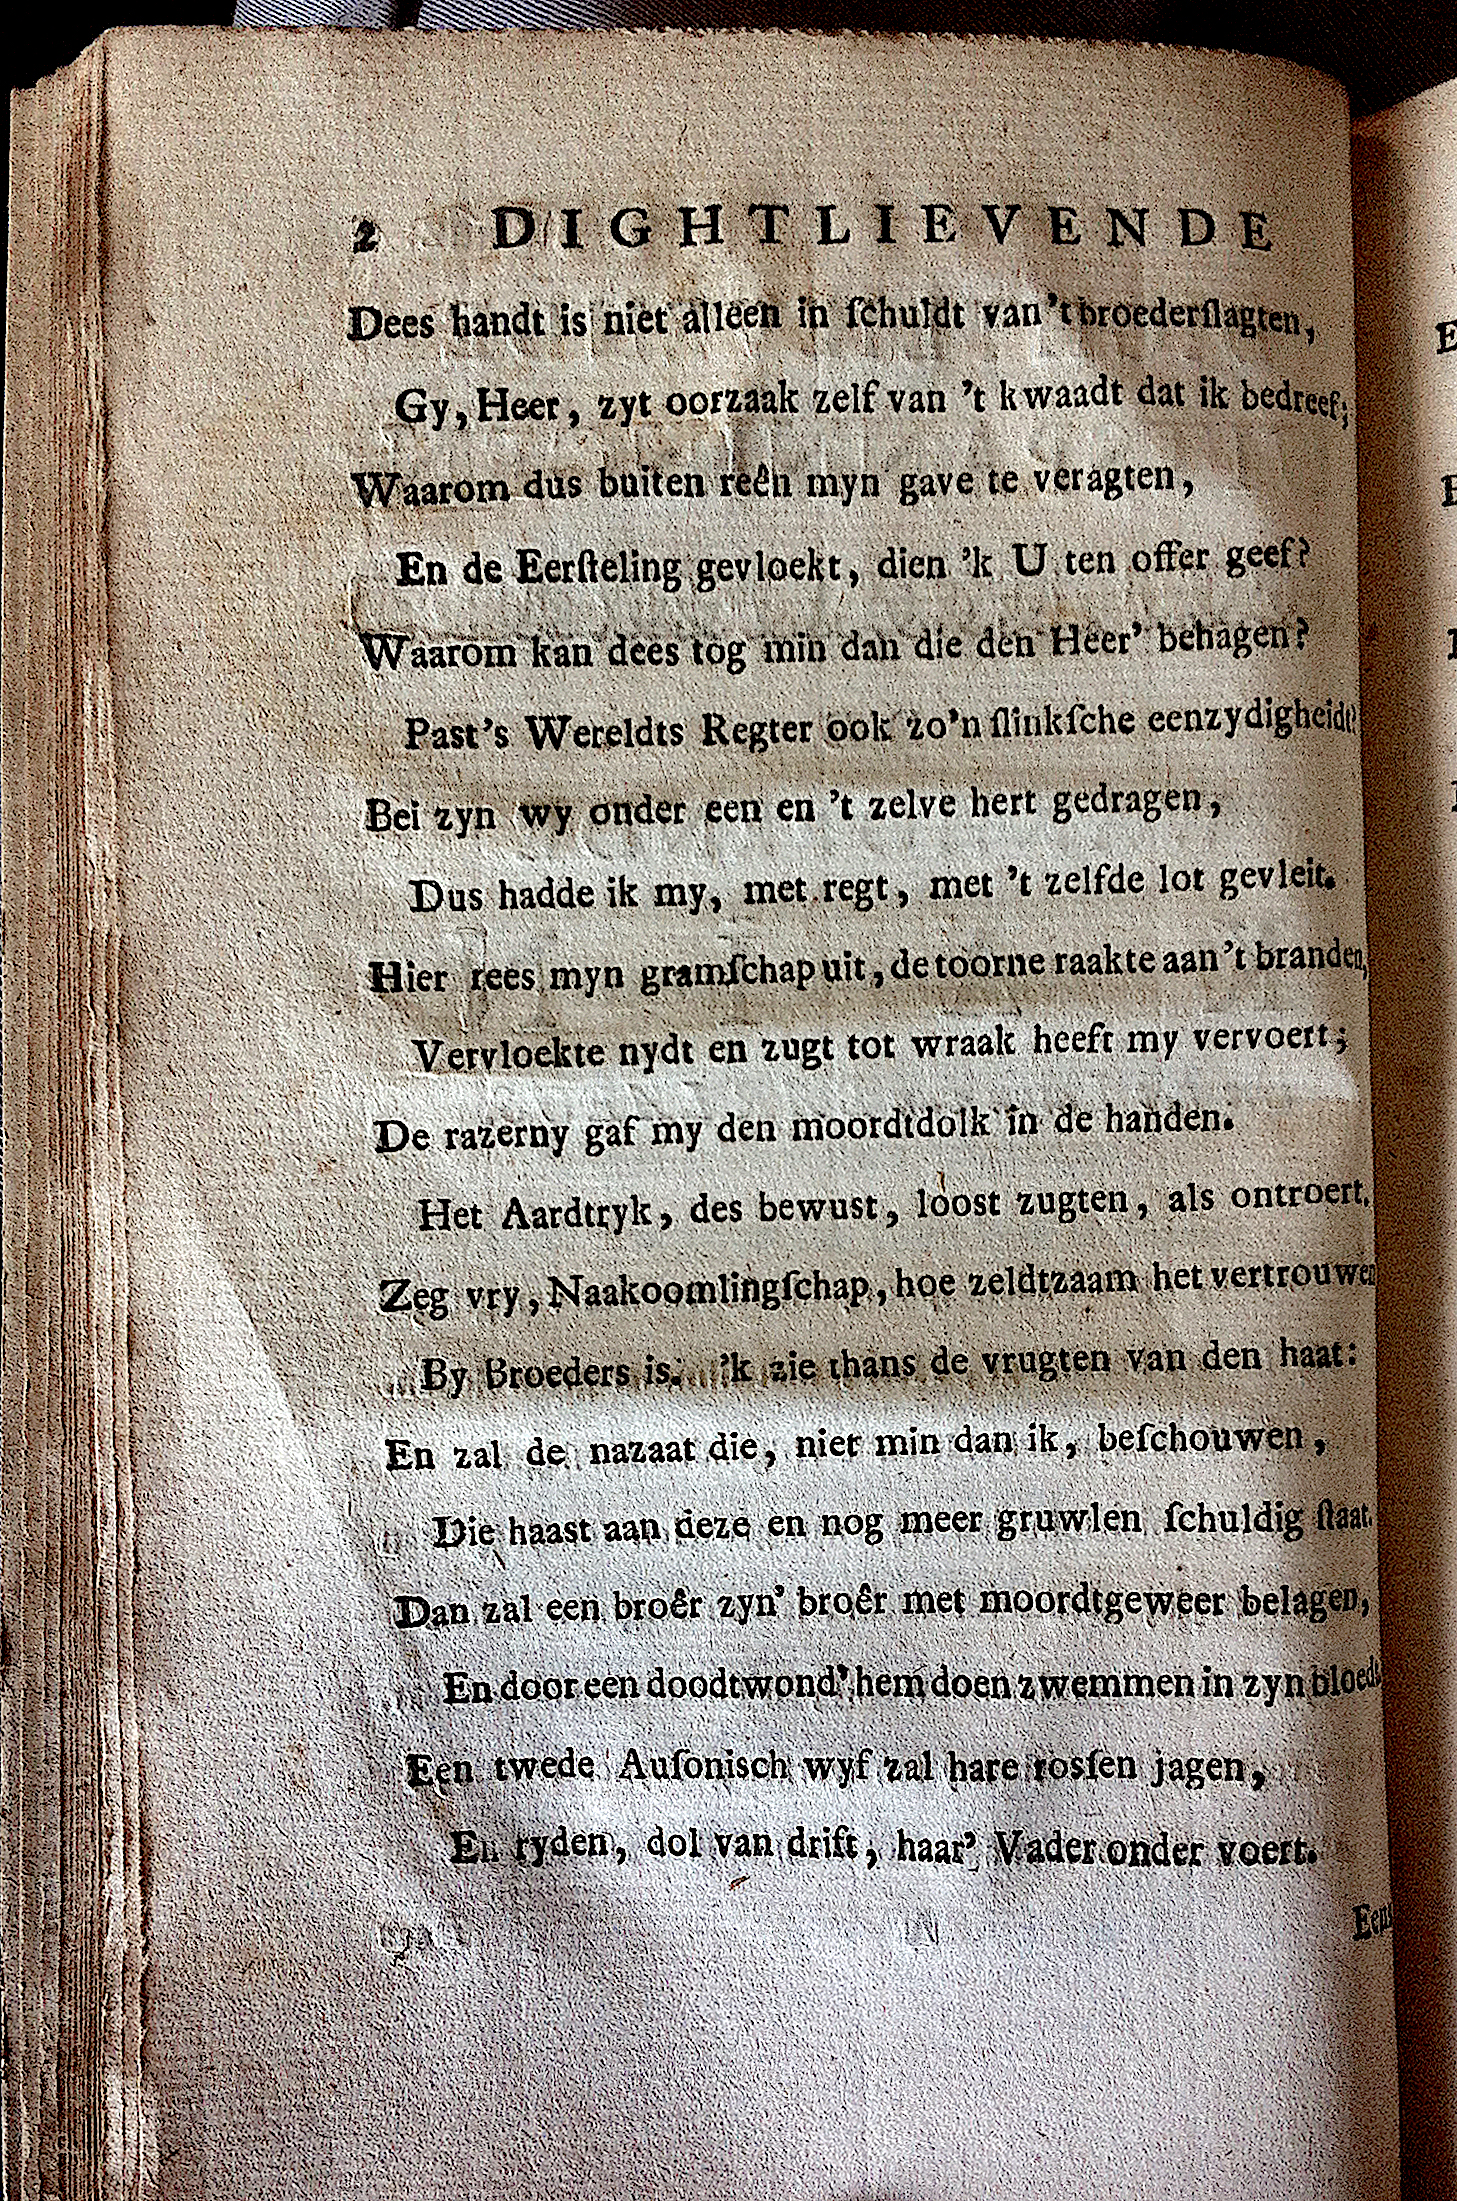 2 DIGHTLIEVENDE
Dees handt is niet alleen in ſchuldt van 't broederſlagten,
Gy, Heer, zyt oorzaak zelf van 't kwaadt dat ik bedreef;
Waarom dus buiten reên myn gave te veragten,
En de Eerſteling gevloekt, dien 'k U ten offer geef?
Waarom kan dees tog min dan die den Heer' behagen?
Past's Wereldts Regter ook zo'n ſlinkſche eenzydigheidt?
Bei zyn wy onder een en 't zelve hert gedragen,
Dus hadde ik my, met regt, met 't zelfde lot gevleit.
Hier rees myn gramſchap uit, de toorne raakte aan 't branden,
Vervloekte nydt en zugt tot wraak heeft my vervoert;
De razerny gaf my den moordtdolk in de handen.
Het Aardtryk, des bewust, loost zugten, als ontroert.
Zeg vry, Naakoomlingſchap, hoe zeldtzaam het vertrouwen
By Broeders is. 'k zie thans de vrugten van den haat:
En zal de nazaat die, niet min dan ik, beſchouwen,
Die haast aan deze en nog meer gruwlen ſchuldig ſtaat.
Dan zal een broêr zyn' broêr met moordtgeweer belagen,
En door een doodtwond' hem doen zwemmen in zyn bloedt
Een twede Auſonisch wyf zal hare rosſen jagen,
En ryden, dol van drift, haar' Vader onder voert.
Eens